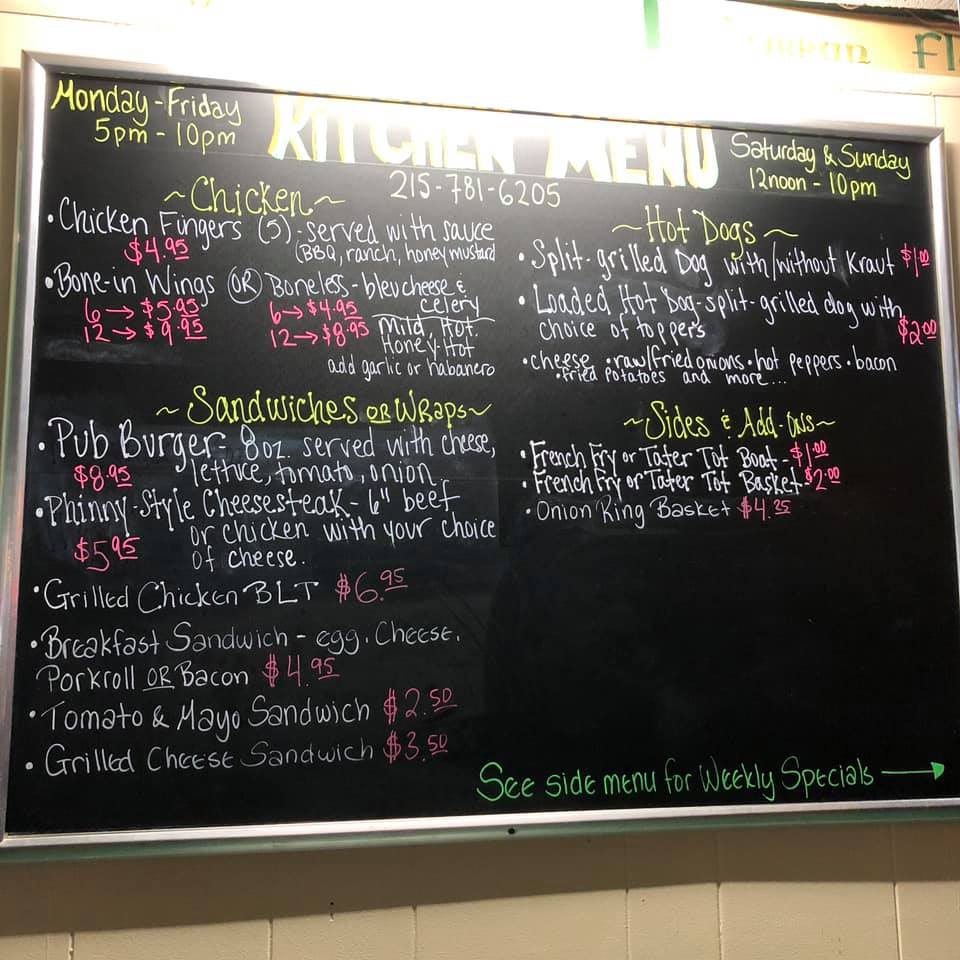 Monday-Friday
5pm - 10pm
KITCHEN MENU
215-781-6205
Saturday & Sunday
12noon - 10pm
~Chicken~
•Chicken Fingers (5)-served with sauce
$4.95 (BBQ, ranch, honey mustard
•Bone-in Wings OR Boneless-bleu cheese &
celery
6→$5.95 6→$4.95
12→$9.95 12→$8.95 Mild, Hot.
Honey-Hot
add garlic or habanero
~Sandwiches OR Wraps~
•Pub Burger- 8oz. served with cheese,
$8.95 lettuce, tomato, onion
•Phinny-Style Cheesesteak-6" beef
or chicken with your choice
$5.95 of cheese.
•Grilled Chicken BLT $6.95
•Breakfast Sandwich - egg. Cheese.
Porkroll OR Bacon $4.95
•Tomato & Mayo Sandwich $2.50
•Grilled Cheese Sandwich $3.50
~Hot Dogs~
•Split-grilled Dog with/without Kraut $1.00
•Loaded Hot Dog-split-grilled dog with
choice of toppers $2.00
•cheese •raw/fried onions•hot peppers•bacon
•fried potatoes and more...
~Sides & Add-Ons~
•French Fry or Tater Tot Boat-$1.00
•French Fry or Tater Tot Basket-$2.00
•Onion Ring Basket $4.25
See side menu for Weekly Specials →